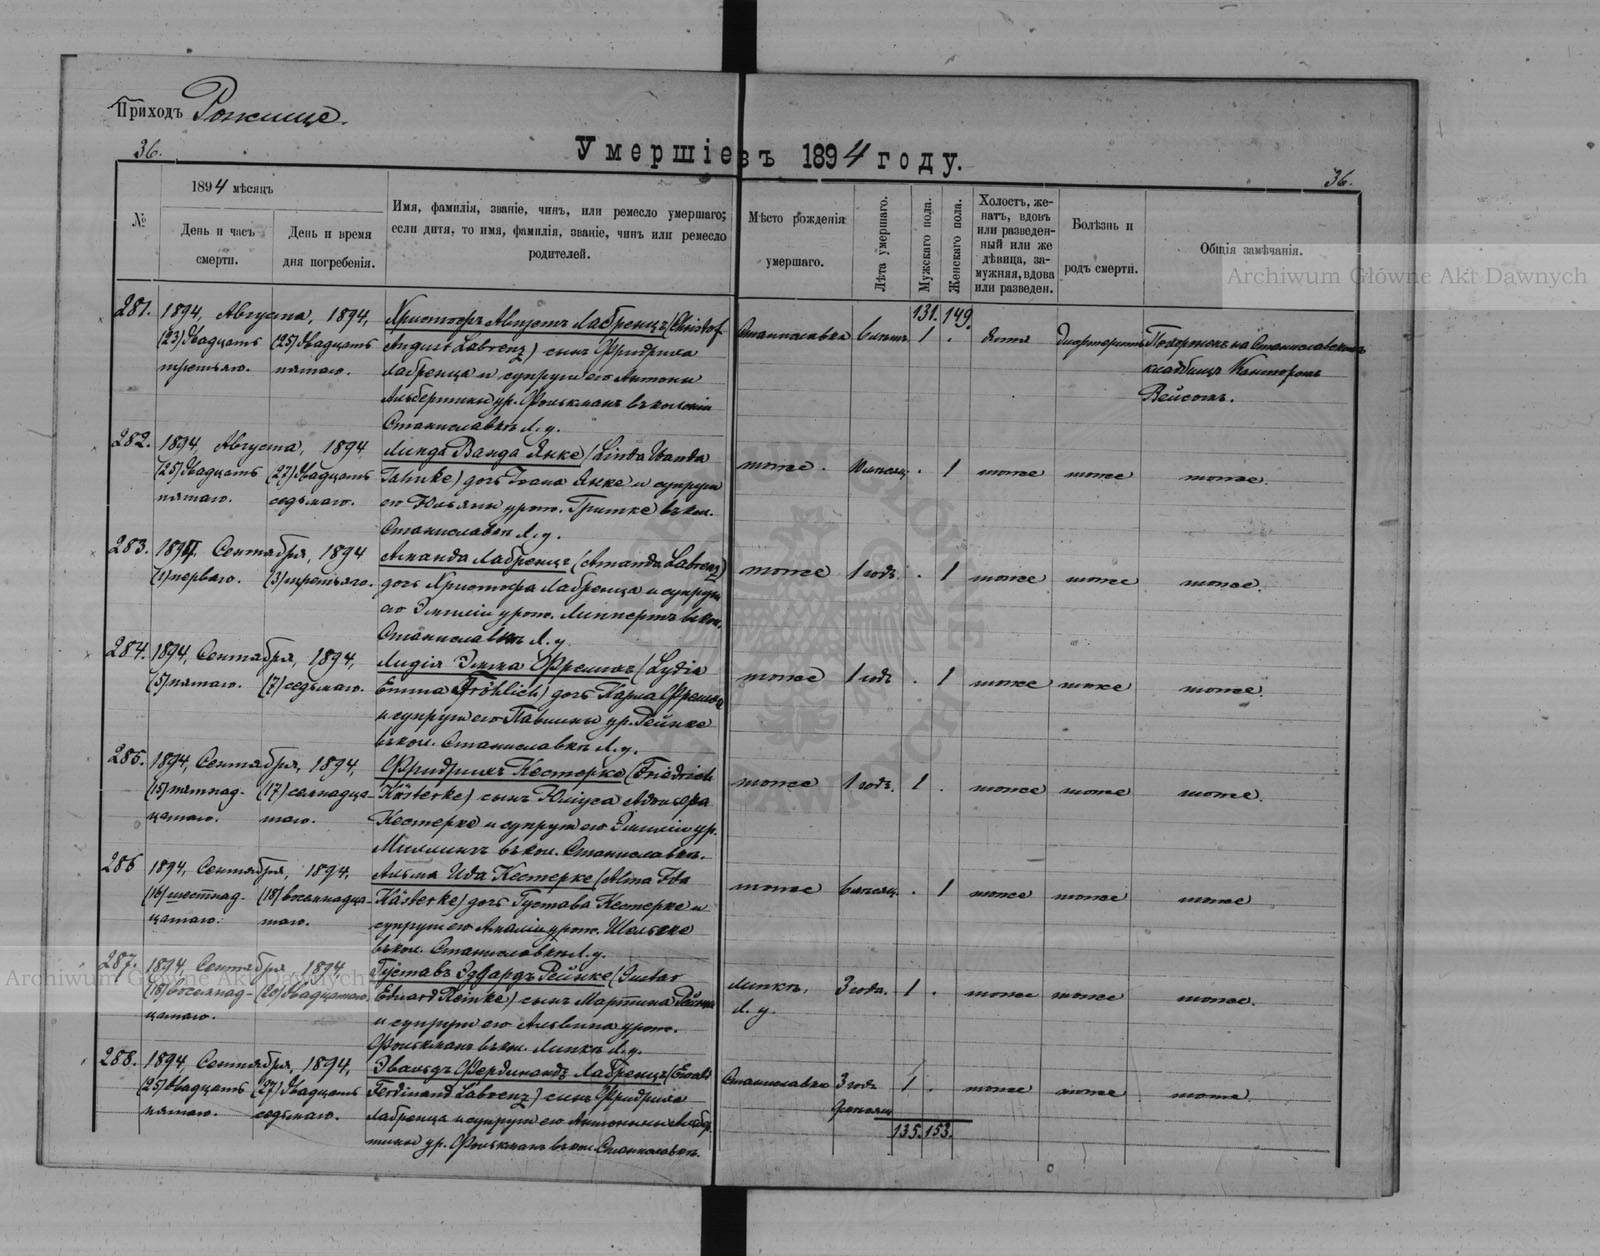 Приходъ Рожище.
Умершіе въ 1894 году.
36.
36.
№
1894 мѣсяцъ
День и часъ смерти.
День и время дня погребенія.
Имя, фамилія, званіе, чинъ, или ремесло умершаго;
если дитя, то имя, фамилія, званіе, чинъ или ремесло
родителей.
Мѣсто рожденія
умершаго.
Лѣта умершаго.
Мужскаго пола.
Женскаго пола.
Холостъ, же-
натъ, вдовъ
или разведен-
ный или же
дѣвица, за-
мужняя, вдова
или разведен.
Болѣзнь и
родъ смерти.
Общія замѣчанія.
Archiwum Główne Akt Dawnych
131. 149.
281. 1894, Августа, 1894, Христофъ Августъ Лабренцъ (Christof
(23) двадцать (25) двадцать August Labrenz) сынъ Фридриха
третьяго. пятаго. Лабренца и супруги его Антони
Альбертины ур. Фолькманъ въ колоніи
Станиславкѣ Л. у.
Станиславка 1 . дитя дифтеритъ Похороненъ на Станиславскомъ
кладбищѣ Канторомъ
Вейсомъ.
282. 1894, Августа, 1894 Линда Ванда Янке (Linda Wanda
(25) двадцать (27) двадцать Jahnke) дочь Іоана Янке и супруги
пятаго. седьмаго. его Юльяны урож. Гритке въ кол.
Станиславкѣ Л. у.
тоже . 1 тоже тоже тоже.
283. 1894, Сентября, 1894 Аманда Лабренцъ (Amanda Labrenz)
(1) перваго. (3) третьяго. дочь Христофа Лабренца и супруги
его Эмиліи урож. Липпертъ въ кол.
Станиславкѣ Л. у.
тоже 1 годъ. . 1 тоже тоже тоже.
284. 1894, Сентября, 1894, Лидія Эмма Фрелихъ (Lydia
(5) пятаго. (7) седьмаго. Emma Fröhlich) дочь Карла Фрелиха
и супруги его Павлины ур. Рейнке
въ кол. Станиславкѣ Л. у.
тоже 1 годъ . 1 тоже тоже тоже.
285. 1894, Сентября, 1894, Фридрихъ Кестерке (Friedrich
(15) пятнад- (17) семнадца- Kästerke) сынъ Юліуса Адольфа
цатаго. таго. Кестерке и супруги его Эмиліи ур.
въ кол. Станиславкѣ.
тоже 1 годъ. 1 . тоже тоже тоже.
286 1894, Сентября, 1894, Альма Ида Кестерке (Alma Ida
(16) шестнад- (18) восемнадца- Kästerke) дочь Густава Кестерке и
цатаго. таго. супруги его Амаліи урож.
въ кол. Станиславкѣ Л. у.
тоже 6 мѣсяц. . 1 тоже тоже тоже
287. 1894, Сентября, 1894 Густавъ Эдуардъ Рейнке (Gustav
(18) восемнад- (20) двадцатаго. Eduard Reinke) сынъ Мартина Рейнке
цатаго. и супруги его Альвина урож.
Фолькманъ въ кол. Липкѣ Л. у.
Липкѣ, 3 года. 1 . тоже тоже тоже.
Л. у.
288. 1894, Сентября, 1894, Эвальдъ Фердинандъ Лабренцъ (Ewald
(25) двадцать (27) двадцать Ferdinand Labrenz) сынъ Фридриха
пятаго. седьмаго. Лабренца и супруги его
ур. Фолькманъ въ кол. Станиславкѣ.
Станиславка 3 года 1 . тоже тоже тоже
135. 153.
Archiwum Główne Akt Dawnych